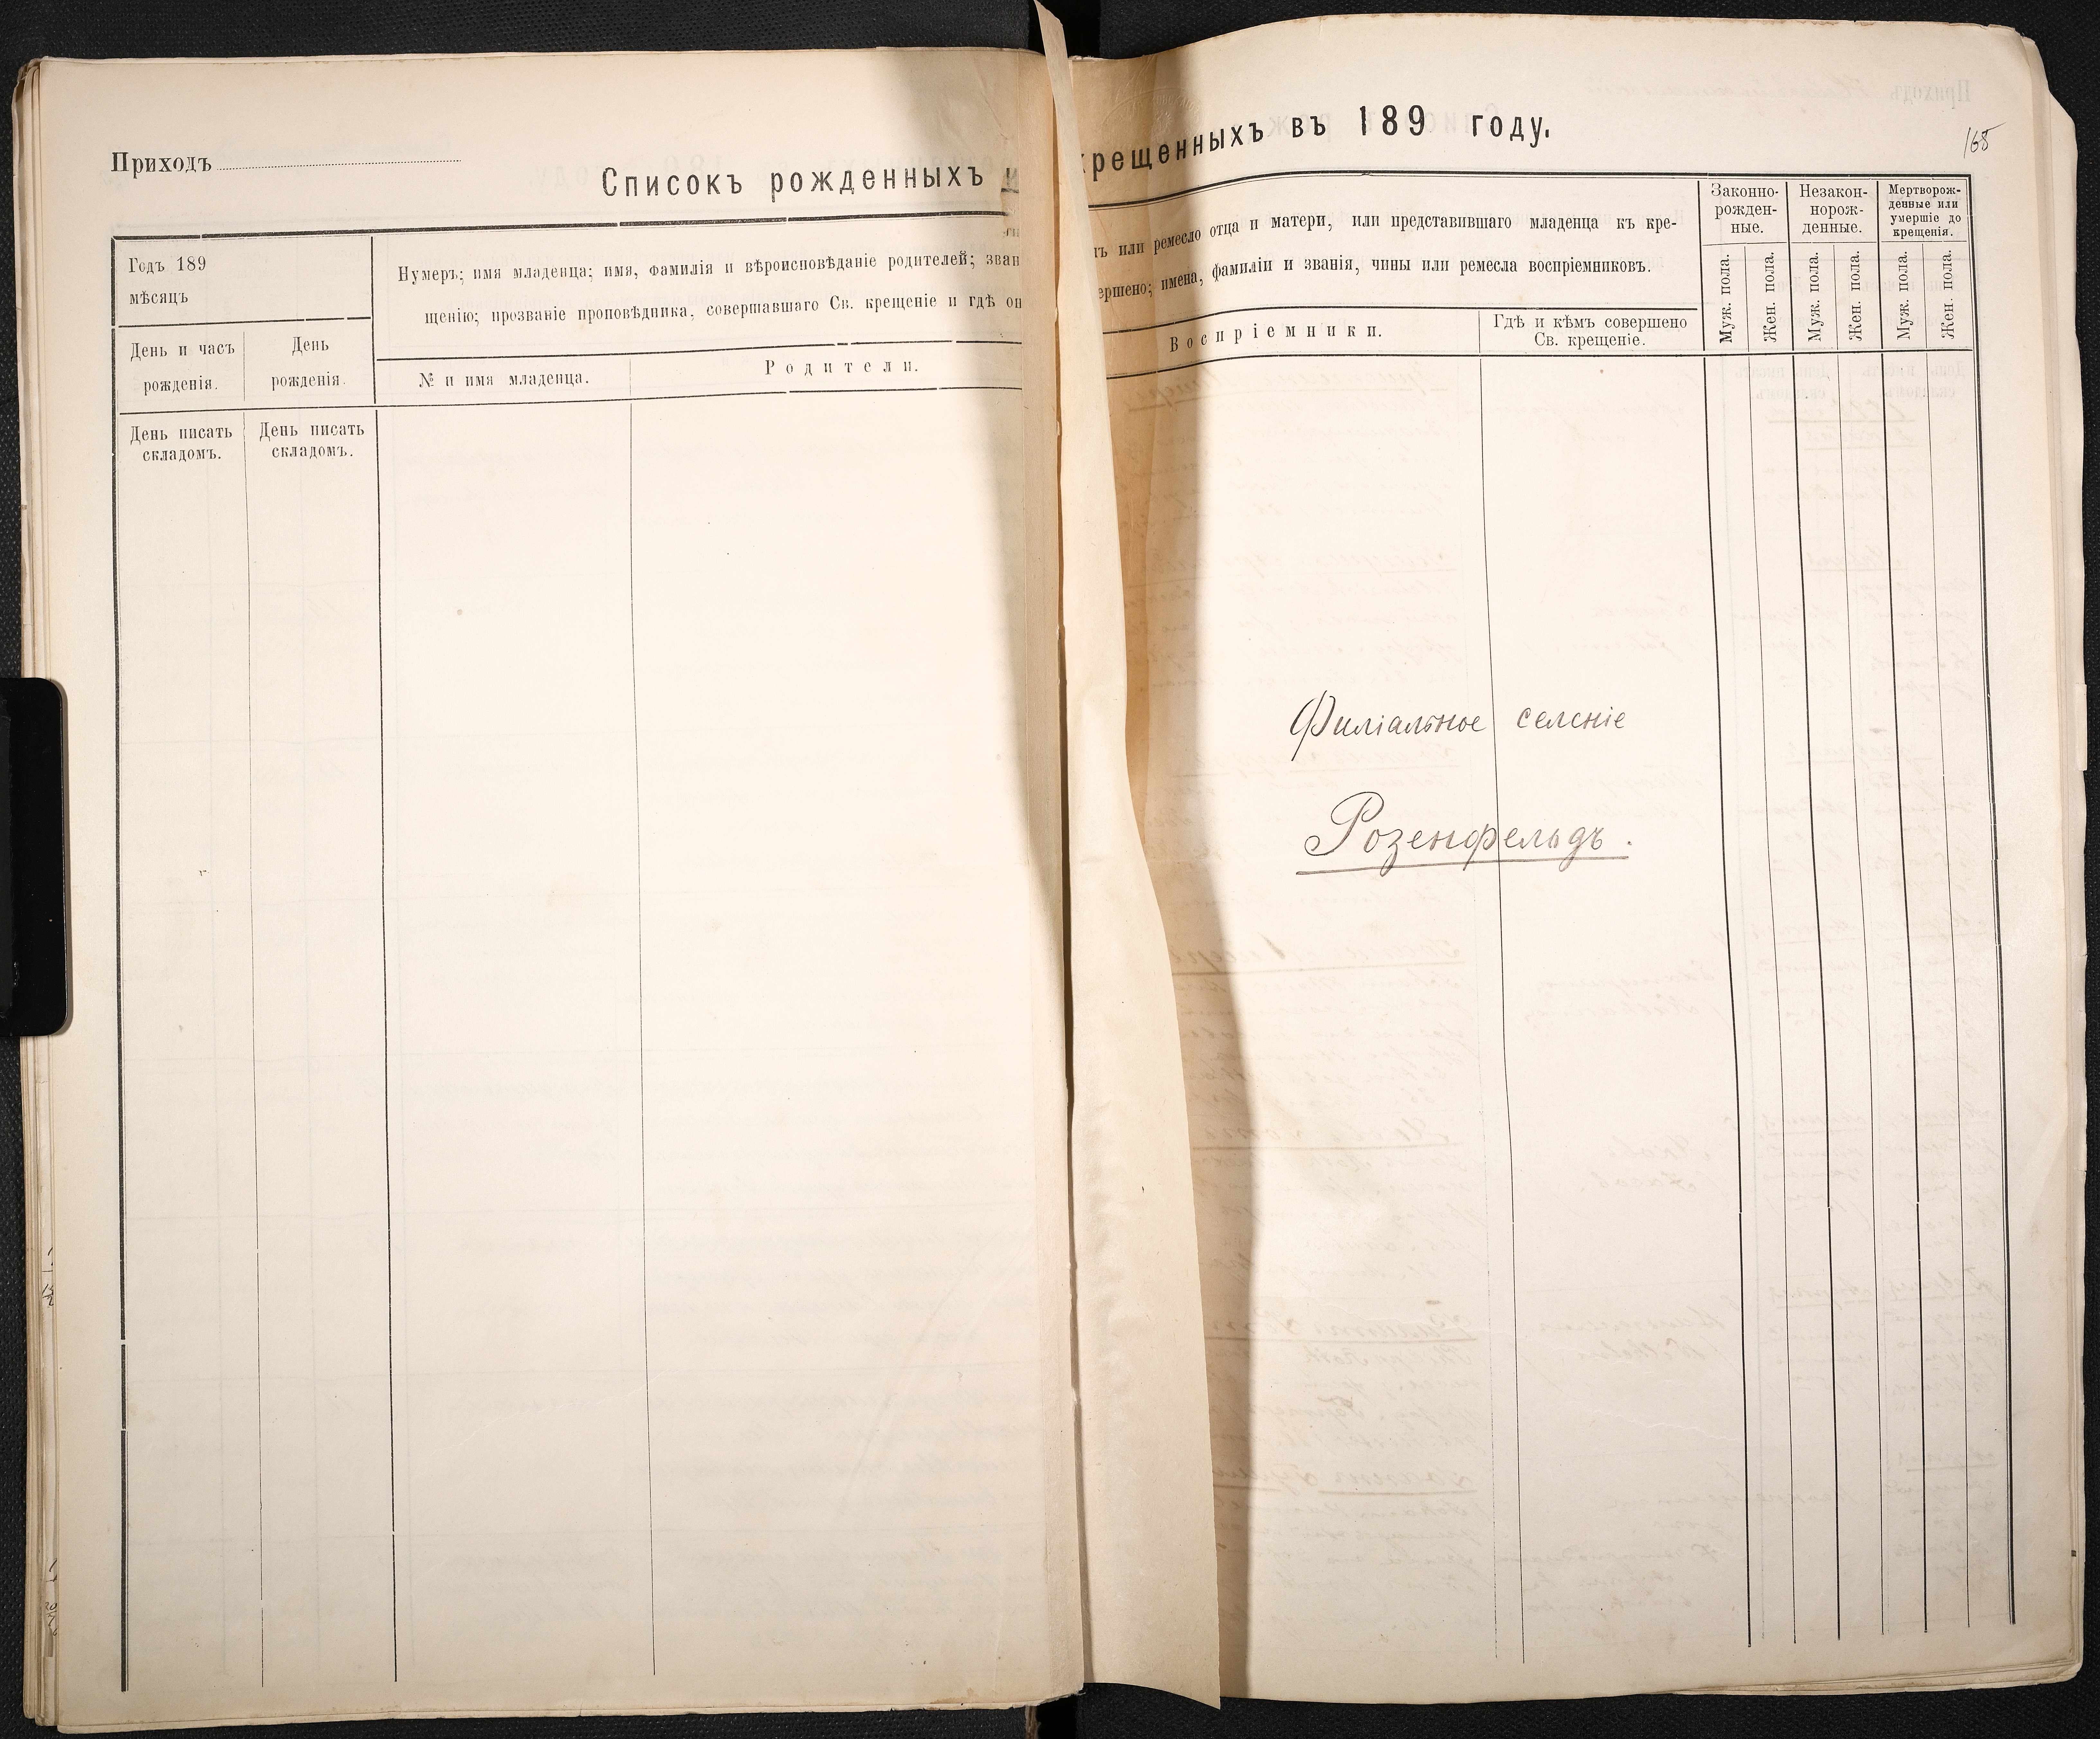 Приходъ
Списокъ рожденныхъ и
Годъ 189
мѣсяцъ
Нумеръ; имя младенца; имя, фамилія и вѣроисповѣданіе родителей; зван
щенію; прозваніе проповѣдника, совершавшаго Св. крещеніе и гдѣ он
День и часъ
рожденія.
День
рожденія.
№ и имя младенца.
Родители.
День писать
складомъ.
День писать
складомъ.
крещенныхъ въ 189 году.
168
ъ или ремесло отца и матери, или представившаго младенца къ кре-
ершено; имена, фамиліи и званія, чины или ремесла воспріемниковъ.
Воспріемники.
Гдѣ и кѣмъ совершено
Св. крещеніе.
Законно-
рожден-
ные.
Незакон-
норож-
денные.
Мертворож-
денные или
умершіе до
крещенія.
Муж. пола.
Жен. пола.
Муж. пола.
Жен. пола.
Муж. пола.
Жен. пола.
Филіальное селеніе
Розенфельдъ.